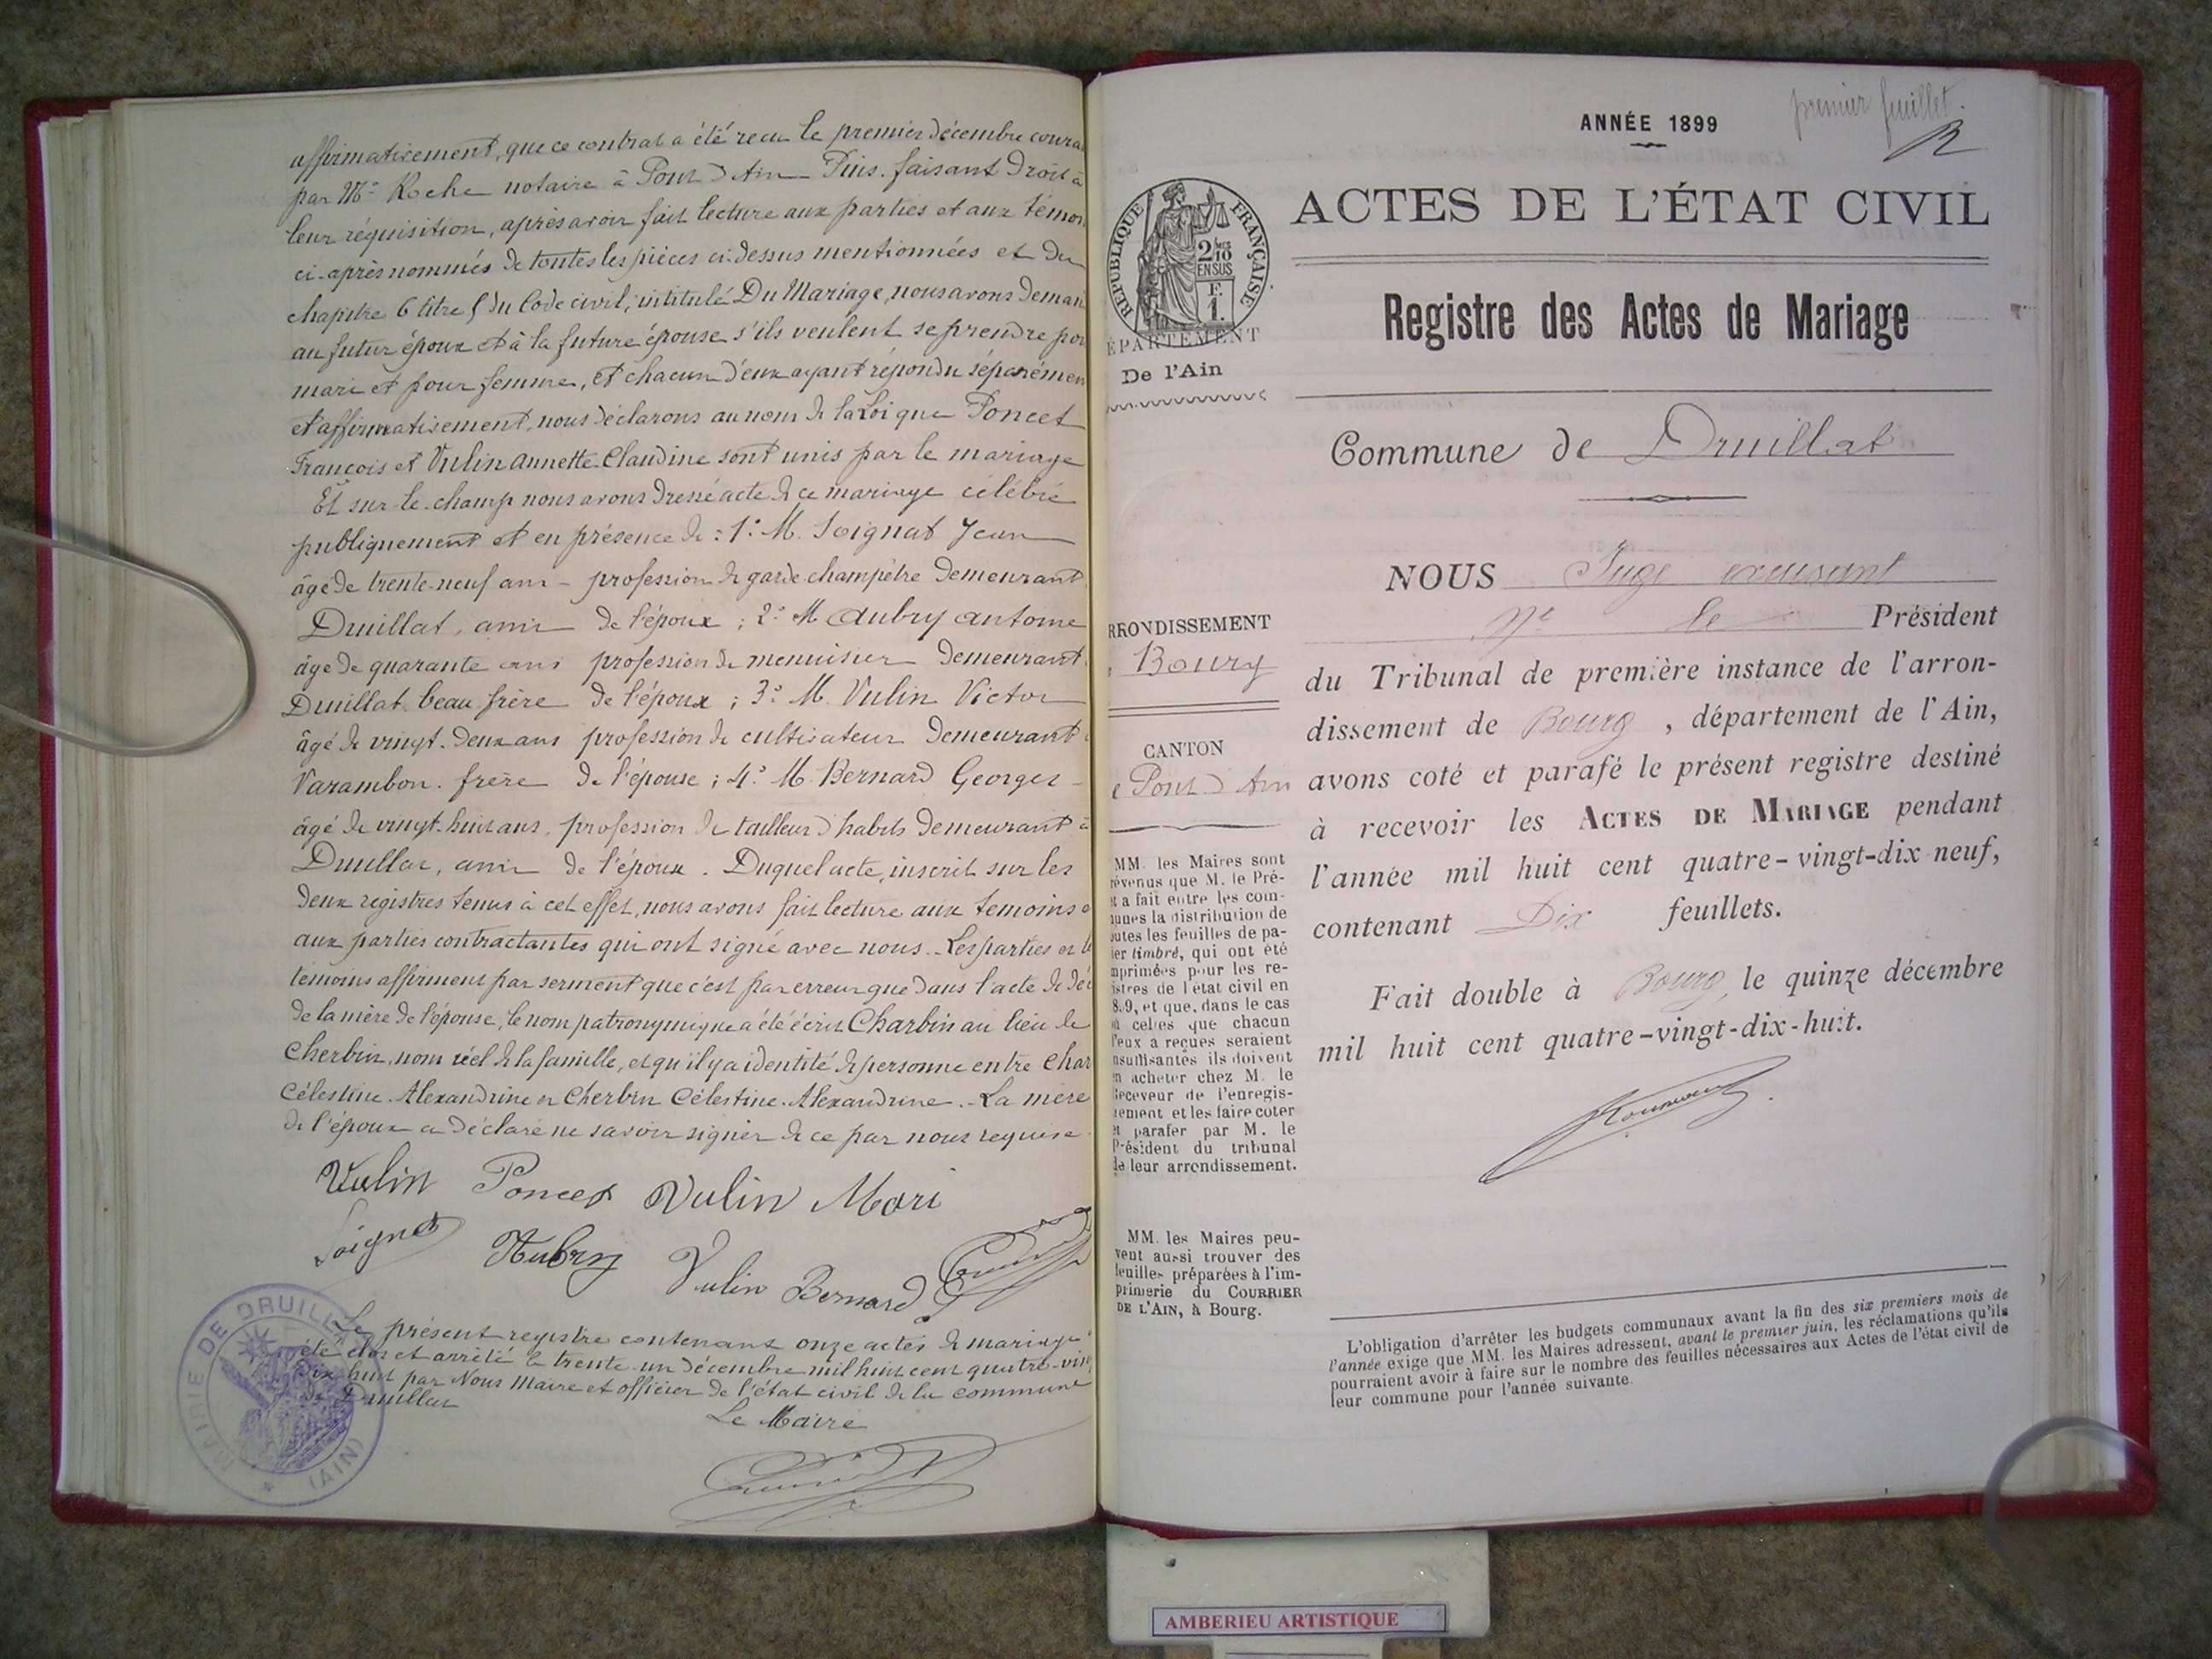 affirmativement, que ce contrat a été reçu le premier décembre coura
par Me Roche notaire à Pont d'Ain Puis, faisant droit à
leur réquisition, après avoir fait lecture aux parties et aux témoi
ci-après nommés de toutes les pièces ci-dessus mentionnées et du
chapitre 6 titre 5 du Code civil, intitulé Du Mariage, nous avons deman
au futur époux et à la future épouse s'ils veulent se prendre pou
mari et pour femme, et chacun d'eux ayant répondu séparémen
et affirmativement, nous déclarons au nom de la Loi que Poncet
François et Vulin Annette Claudine sont unis par le mariage
Et sur-le-champ nous avons dressé acte de ce mariage célébré
publiquement et en présence de : 1° M. Soignat Jean
âgé de trente-neuf ans - profession de garde-champêtre demeurant
Druillat, ami de l'époux ; 2° M Aubry Antoine
âgé de quarante ans profession de menuisier demeurant
Druillat beau frère de l'époux ; 3° M. Vulin Victor
âgé de vingt-deux ans profession de cultivateur demeurant
Varambon. frère de l'épouse ; 4° M Bernard Georges
âgé de vingt-huit ans, profession de tailleur d'habits demeurant à
Druillat, ami de l'époux. Duquel acte, inscrit sur les
deux registres tenus à cet effet, nous avons fait lecture aux témoins e
aux parties contractantes qui ont signé avec nous. - Les parties et le
témoins affirment par serment que c'est par erreur que dans l'acte de déc
de la mère de l'épouse, le nom patronymique a été écrit Charbin au lieu de
Cherbin, nom réel de la famille, et qu'il y a identité de personne entre Char
Célestine-Alexandrine et Cherbin Célestine-Alexandrine. - La mère
de l'époux a déclaré ne savoir signer de ce par nous requise
Vulin Poncet Vulin Mari
Soignat Aubry Vulin Bernard G
MAIRIE DE DRUILLAT
(AIN)
Le présent registre contenant onze actes de mariage
été clos et arrêté le trente-un décembre mil huit cent quatre-vin
dix-huit par Nous Maire et officier de l'état civil de la commune
de Druillat
Le Maire
premier feuillet.
ANNÉE 1899
RÉPUBLIQUE FRANÇAISE
2 MES
10
EN SUS
F.
1.
ÉPARTEMENT
De l'Ain
ACTES DE L'ÉTAT CIVIL
Registre des Actes de Mariage
Commune de Druillat
RRONDISSEMENT
Bourg
CANTON
e Pont d'Ain
MM. les Maires sont
révenus que M. le Pré-
et a fait entre les com-
munes la distribution de
outes les feuilles de pa-
ier timbré, qui ont été
mprimées pour les re-
istres de l'état civil en
8.9, et que, dans le cas
ù celles que chacun
d'eux a reçues seraient
nsuffisantes ils doivent
en acheter chez M. le
Receveur de l'enregis-
rement et les faire coter
et parafer par M. le
Président du tribunal
de leur arrondissement.
MM. les Maires peu-
vent aussi trouver des
feuilles préparées à l'im-
primerie du COURRIER
DE L'AIN, à Bourg.
NOUS Juge
le Président
du Tribunal de première instance de l'arron-
dissement de Bourg , département de l'Ain,
avons coté et parafé le présent registre destiné
à recevoir les ACTES DE MARIAGE pendant
l'année mil huit cent quatre-vingt-dix neuf,
contenant Dix feuillets.
Fait double à Bourg, le quinze décembre
mil huit cent quatre-vingt-dix-huit.
L'obligation d'arrêter les budgets communaux avant la fin des six premiers mois de
l'année exige que MM. les Maires adressent, avant le premier juin, les réclamations qu'ils
pourraient avoir à faire sur le nombre des feuilles nécessaires aux Actes de l'état civil de
leur commune pour l'année suivante.
AMBERIEU ARTISTIQUE